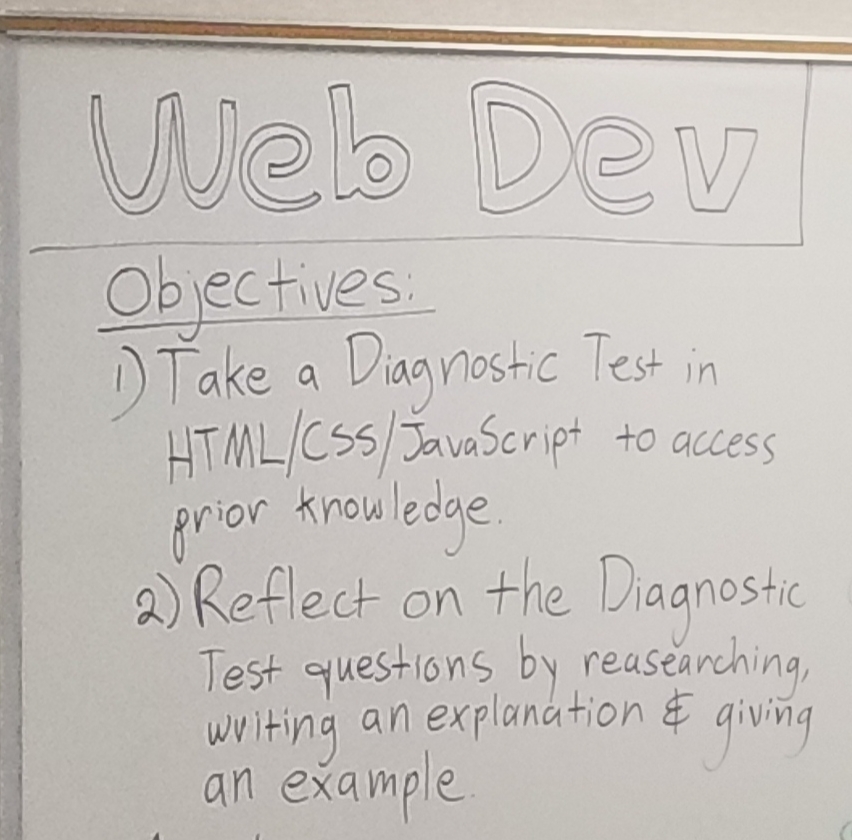 Web Dev
Objectives:
1) Take a Diagnostic Test in
HTML/CSS/JavaScript to access
prior knowledge.
2) Reflect on the Diagnostic
Test questions by reasearching,
writing an explanation & giving
an example.